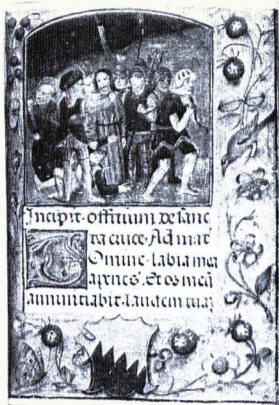 Incipit offitium de sanc
ta cruce Ad mat
Domine labia mea
apries Et os meū
annuntiabit laudem tuaz